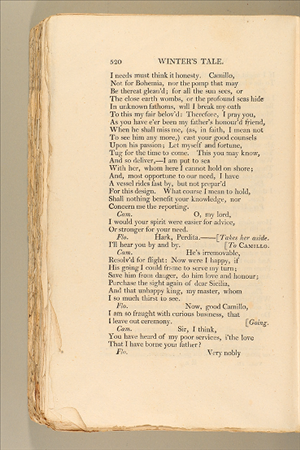 520 WINTER'S TALE.
I needs must think it honesty. Camillo,
Not for Bohemia, nor the pomp that may
Be thereat glean'd; for all the sun sees, or
The close earth wombs, or the profound seas hide
In unknown fathoms, will I break my oath
To this my fair belov'd: Therefore, I pray you,
As you have e'er been my father's honour'd friend,
When he shall miss me, (as, in faith, I mean not
To see him any more,) cast your good counsels
Upon his passion; Let myself and fortune,
Tug for the time to come. This you may know,
And so deliver,—I am put to sea
With her, whom here I cannot hold on shore;
And, most opportune to our need, I have
A vessel rides fast by, but not prepar'd
For this design. What course I mean to hold,
Shall nothing benefit your knowledge, nor
Concern me the reporting.
Cam. O, my lord,
I would your spirit were easier for advice,
Or stronger for your need.
Flo. Hark, Perdita.——[Takes her aside.
I'll hear you by and by. [To CAMILLO.
Cam. He's irremovable,
Resolv'd for flight: Now were I happy, if
His going I could frame to serve my turn;
Save him from danger, do him love and honour;
Purchase the sight again of dear Sicilia,
And that unhappy king, my master, whom
I so much thirst to see.
Flo. Now, good Camillo,
I am so fraught with curious business, that
I leave out ceremony. [Going.
Cam. Sir, I think,
You have heard of my poor services, i'the love
That I have borne your father?
Flo. Very nobly